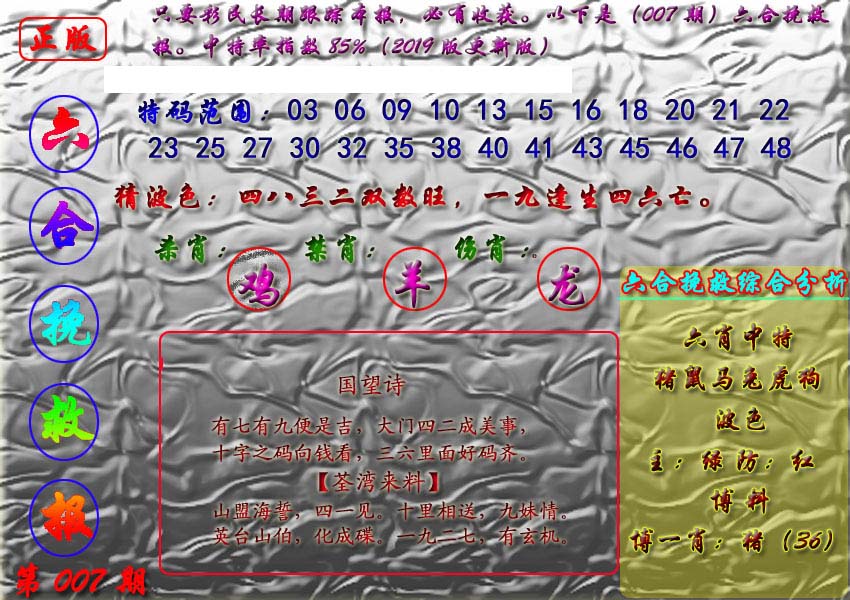 正版
只要彩民长期跟踪本报，必有收获。以下是（007期）六合挽救
报。中特率指数85%（2019版更新版）
六合挽救报
第007期
特码范围：03 06 09 10 13 15 16 18 20 21 22
23 25 27 30 32 35 38 40 41 43 45 46 47 48
猜波色：四八三二双数旺，一九逢生四六七。
杀肖：鸡 禁肖：羊 伤肖：龙。
国望诗
有七有九便是吉，大门四二成美事，
十字之码向钱看，三六里面好码齐。
【荃湾来料】
山盟海誓，四一见。十里相送，九妹情。
英台山伯，化成碟。一九二七，有玄机。
六合挽救综合分析
六肖中特
猪鼠马兔虎狗
波色
主：绿防：红
博料
博一肖：猪（36）